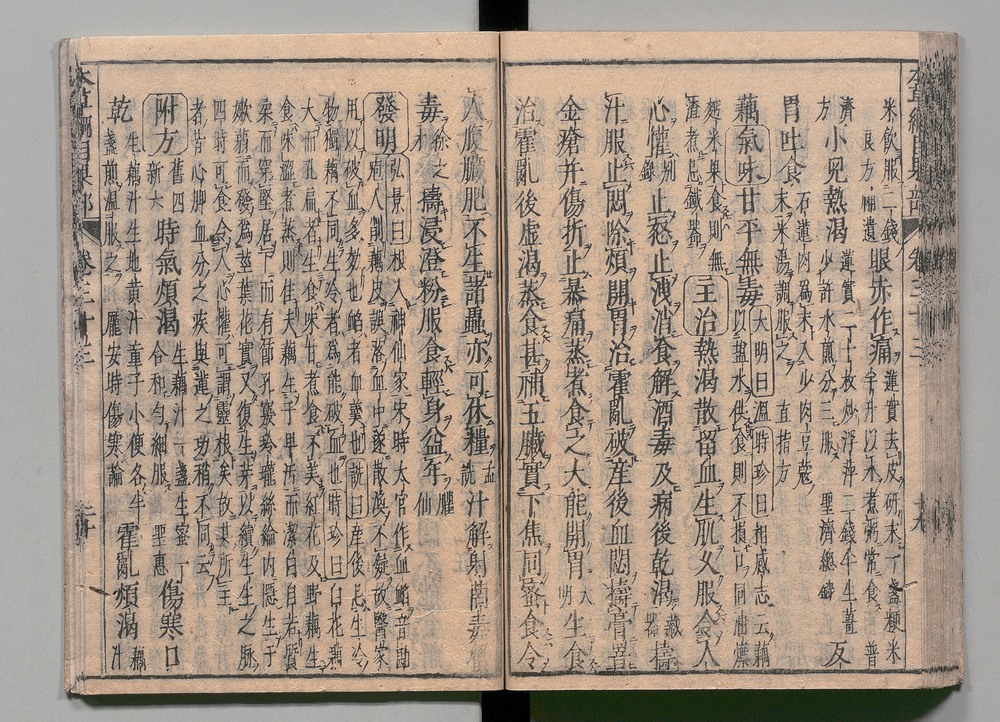 米飲服二錢
良方補遺 眼赤作痛 蓮實去皮研末一盞粳米
半升以水煮粥常食 普
濟
方 小兒熱渴 蓮實二十枚炒浮萍二錢半生薑
少許水煎分三服 聖濟總錄 反
胃吐食 石蓮肉爲末入少肉豆蔻
末米湯調服之 直指方
藕氣味甘平無毒 大明曰溫時珍曰相感志云藕
以鹽水供食則不損口同油煠
麪米果食則無
渣煮忌鐵器 主治熱渴散留血生肌久服令人
心懽別錄止怒止洩消食解酒毒及病後乾渴藏器擣
汁服止悶除煩開胃治霍亂破產後血悶擣膏罯
金瘡并傷折止暴痛蒸煮食之大能開胃大明生食
治霍亂後虛渴蒸食甚補五臟實下焦同蜜食令
人腹臟肥不生諸蟲亦可休糧孟詵汁解射罔毒蟹
毒徐之才擣浸澄粉服食輕身益年臞仙
發明 弘景曰根入神仙家宋時太官作血䘓音勘
庖人削藕皮誤落血中遂散渙不凝故醫家
用以破血多效也䘓者血羹也詵曰產後忌生冷
物獨藕不同生冷者爲能破血也時珍曰白花藕
大而孔扁者生食味甘煮食不美紅花及野藕生
食味澀煮蒸則佳夫藕生于卑汚而潔白自若質
柔而穿堅居下而有節孔竅玲瓏絲綸內隱生于
嫩蒻而發爲莖葉花實又復生芽以續生生之脈
四時可食令人心懽可謂靈根矣故其所主
者皆心脾血分之疾與蓮之功稍不同云
附方 舊四
新六 時氣煩渴 生藕汁一盞生蜜一
合和勻細服 聖惠 傷寒口
乾 生藕汁生地黄汁童子小便各半
盞煎溫服之 龐安時傷寒論 霍亂煩渴 藕
汁
本草綱目果部 卷三十三